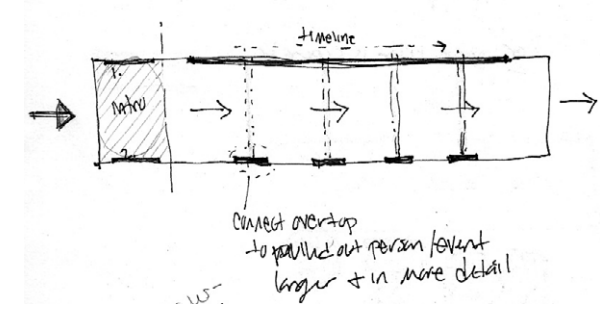 timeline
1.
intro
2.
connect overtop
to pulled out person/event
larger + in more detail